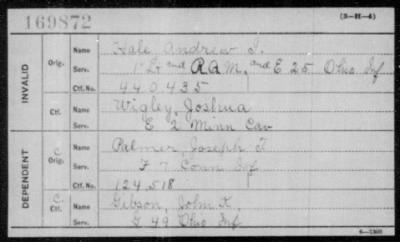 169872
(3-H-4)
INVALID
Orig.
Name Hale, Andrew J.
Serv. 1" Lt and R.Q.M. and E 25 Ohio Inf
Ctf. No. 440.435
Ctf.
Name Wigley, Joshua
Serv. E 2 Minn Cav
DEPENDENT
C. Orig.
Name Palmer, Joseph T.
Serv. F 7 Conn Inf
Ctf. No. 124.518
C. Ctf.
Name Gibson, John K.
Serv. G 49 Ohio Inf